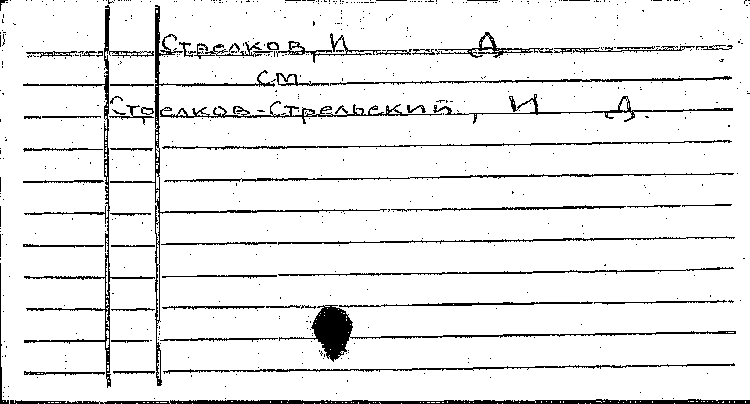 Стрелков, И Д
см.
Стрелков-Стрельский, И Д.